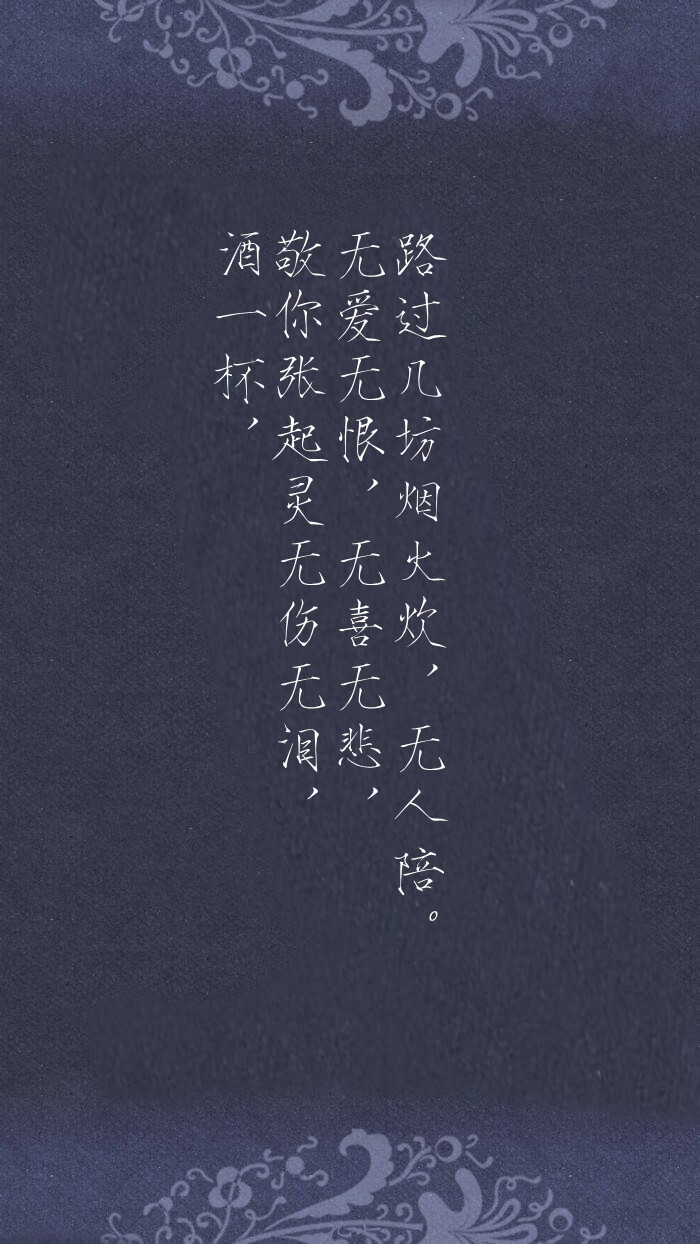 酒一杯，
敬你张起灵无伤无泪，
无爱无恨，无喜无悲，
路过几坊烟火炊，无人陪。